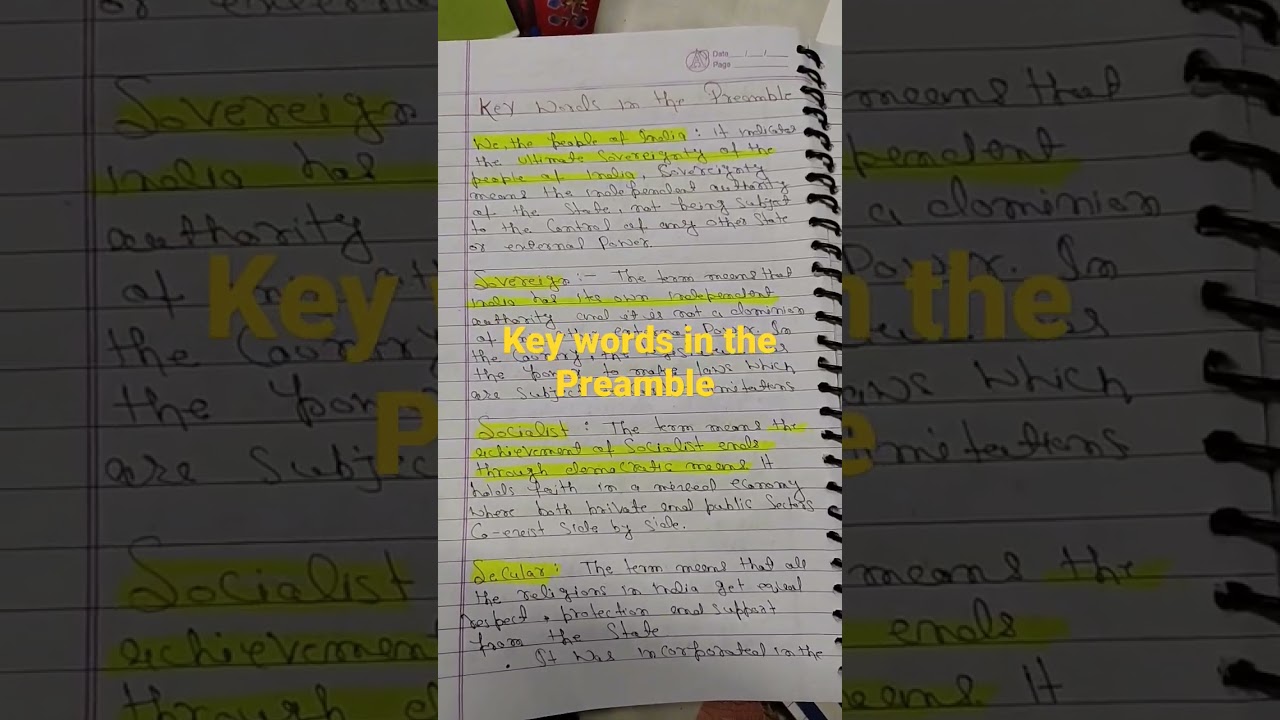 Date / /
Page
Key Words in the Preamble
We, the people of India : it indicates
the ultimate Sovereignty of the
people of India, Sovereignty
means the independent authority
of the State, not being subject
to the Control of any other State
or external Power
Sovereign :- The term means that
India has its own independent
authority and it is not a dominion
of Power. In
the Country
the to make laws which
are Subject limitations
Key words in the
Preamble
Socialist : The term means the
achievement of Socialist ends
through democratic means It
holds faith in a mixed economy
where both private and public Sectors
Co-exist side by side.
Secular : The term means that all
the religions in India get equal
respect, protection and support
from the State
. It was incorporated in the